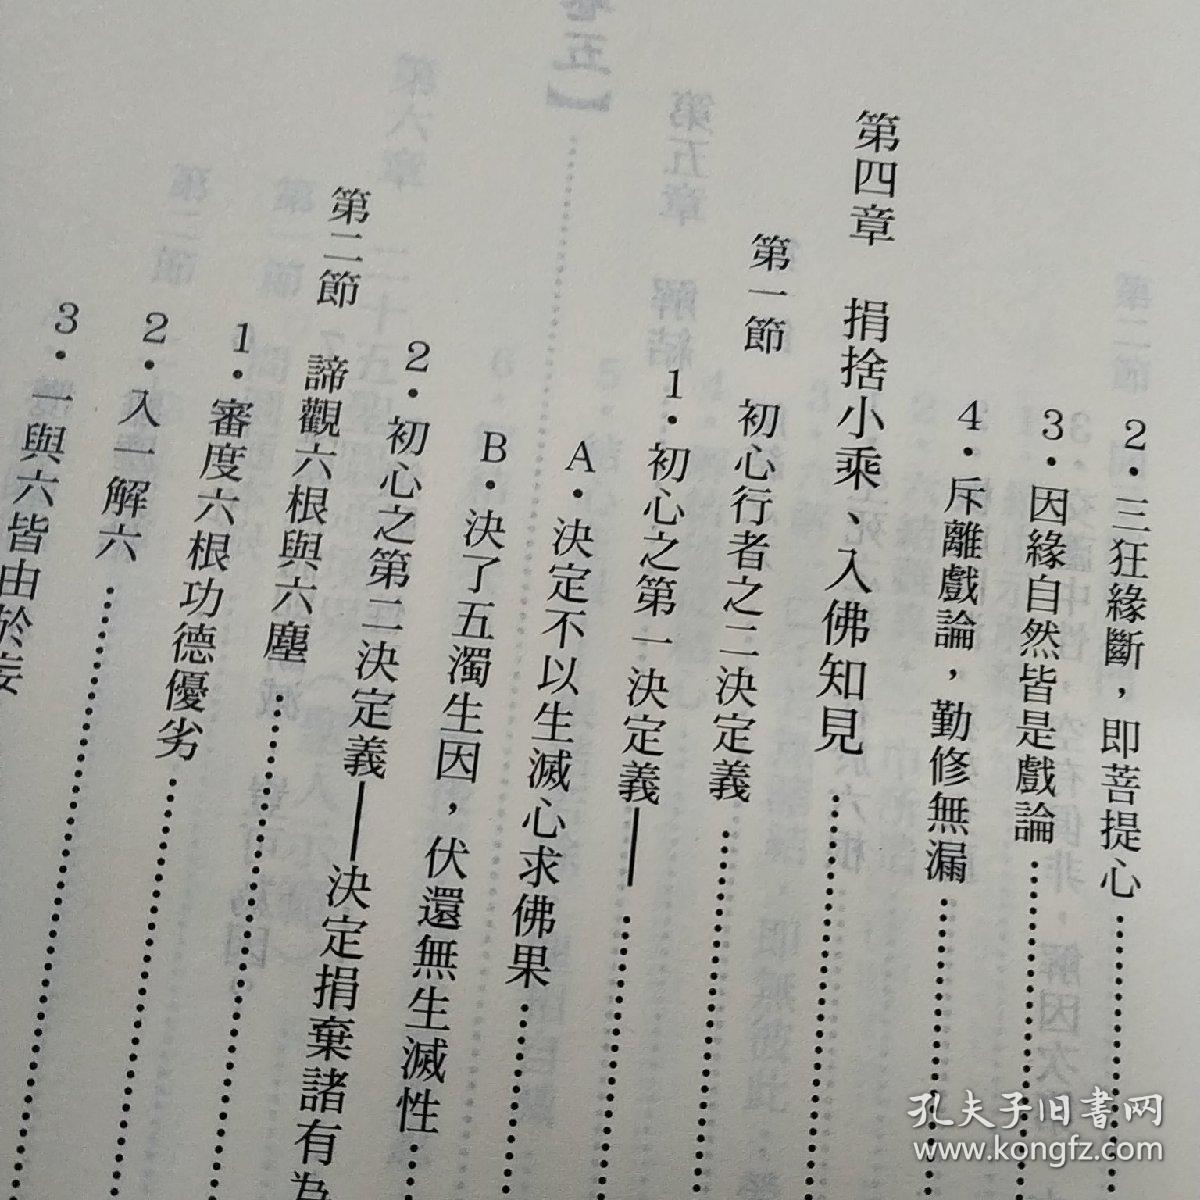 2．三狂緣斷，即菩提心
3．因緣自然皆是戲論
4．斥離戲論，勤修無漏
第四章　捐捨小乘、入佛知見
第一節　初心行者之二決定義
1．初心之第一決定義——
A．決定不以生滅心求佛果
B．決了五濁生因，伏還無生滅性
2．初心之第二決定義——決定捐棄諸有為
第二節　諦觀六根與六塵
1．審度六根功德優劣
2．入一解六
3．一與六皆由於妄
孔夫子旧書网
www.kongfz.com